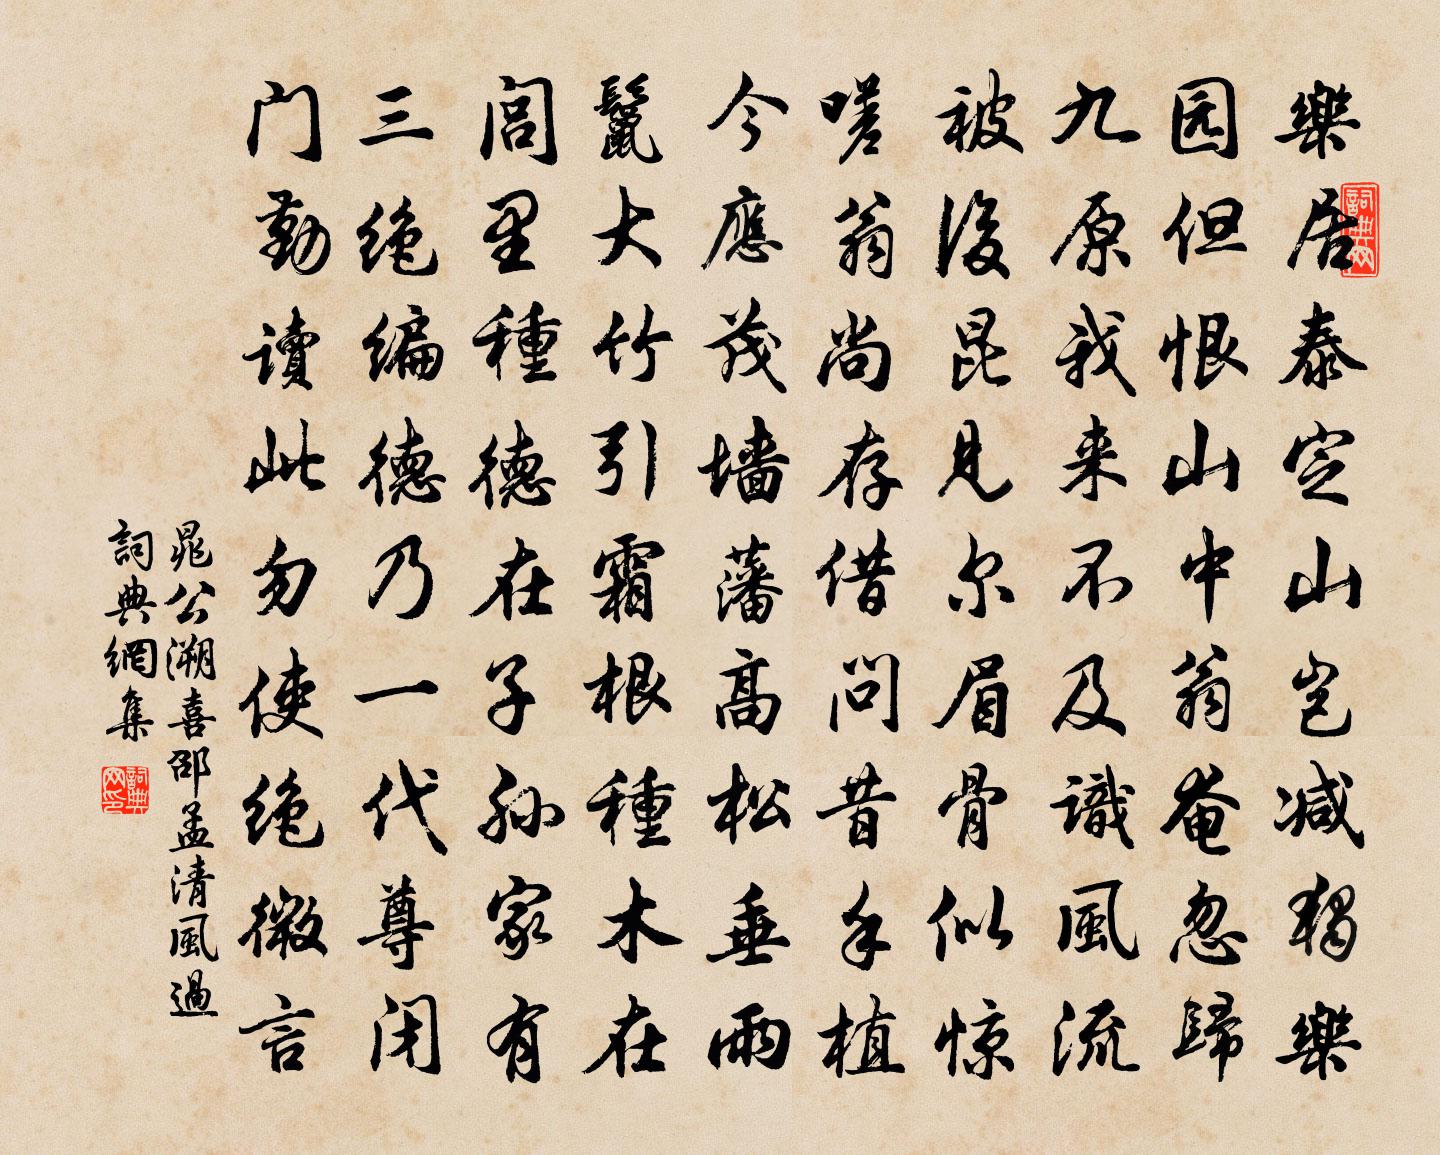 樂居泰定山岂减獨樂
园但恨山中翁奄忽歸
九原我来不及識風流
被後昆见尔眉骨似惊
嗟翁尚存借问昔手植
今應茂墙藩高松垂雨
鬣大竹引霜根種木在
闾里種德在子孙家有
三绝编德乃一代尊闭
门勤讀此勿使绝微言
晁公溯喜邵孟清風過
詞典網集
詞典网
詞典网印